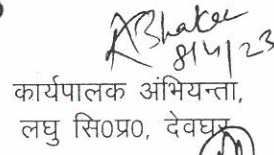 8/4/23
कार्यपालक अभियन्ता,
लघु सि०प्र०, देवघर